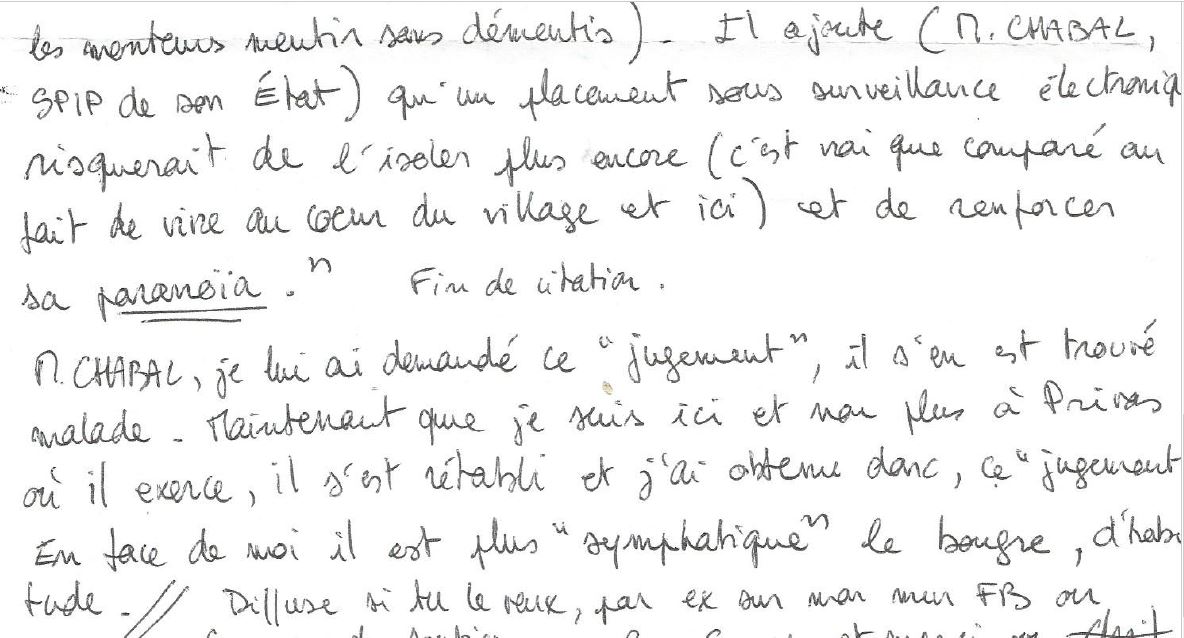 les menteurs mentir sans démentis). Il ajoute (M. CHABAL,
SPIP de son État) qu'un placement sous surveillance électroniq
risquerait de l'isoler plus encore (c'est vrai que comparé au
fait de vivre au coeur du village et ici) et de renforcer
sa paranoïa." Fin de citation.
M. CHABAL, je lui ai demandé ce "jugement", il s'en est trouvé
malade. Maintenant que je suis ici et non plus à Privas
où il exerce, il s'est rétabli et j'ai obtenu donc, ce "jugement
En face de moi il est plus "symphatique" le bougre, d'habi
tude. // Diffuse si tu le veux, par ex sur mon mur FB ou